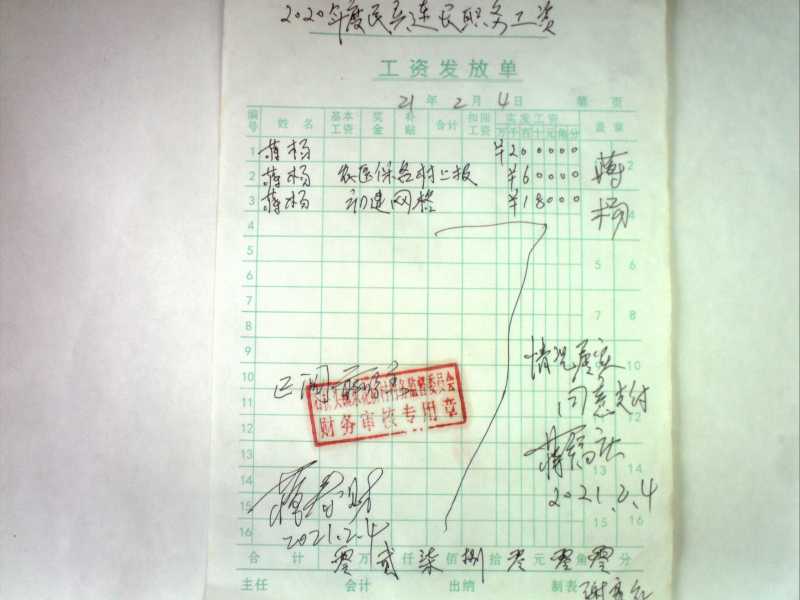 2020年度民兵连长职务工资
工资发放单
21年2月4日 第 页
编号 姓名 基本工资 奖金 补贴 合计 扣回工资 实发工资 盖章
万千百十元角分
1 蒋杨 ¥200000
2 蒋杨 农医保各村上报 ¥60000 蒋 2
3 蒋杨 初建网格 ¥18000
4 杨 4
5 5 6
6
7 7 8
8
9 情况属实
10 已阅 10
同意支付
11 财务审核专用章 11 12
12
13 蒋 13 14
14 2021.2.4
15 蒋 财 15 16
16 2021.2.4
合计 零万贰仟柒佰捌拾零元零角零分
主任 会计 出纳 制表 谢